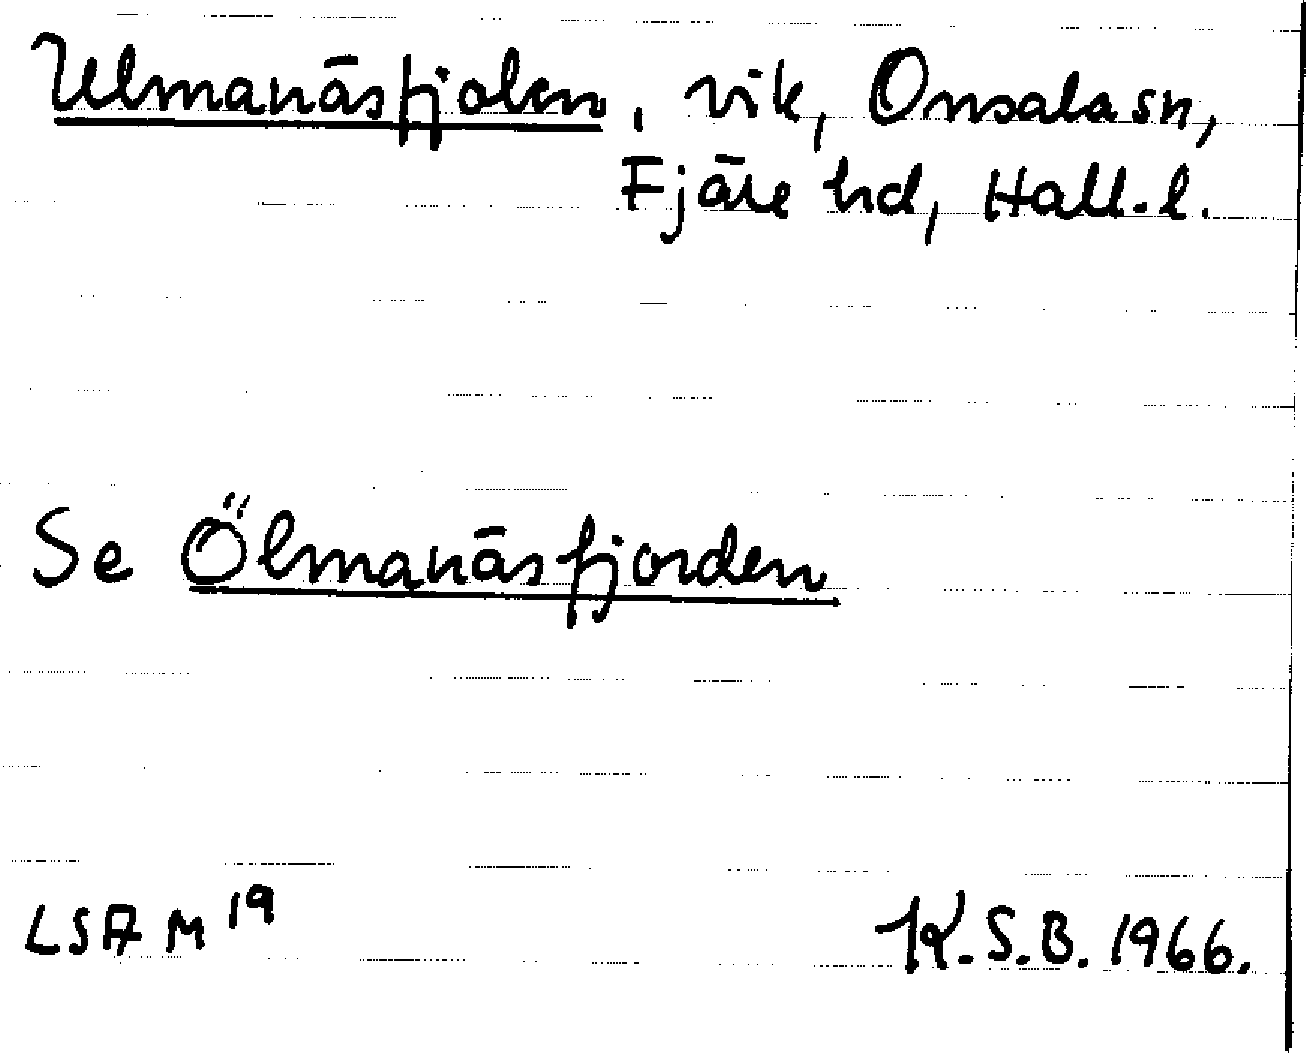 Ulmanäsfjolen, vik, Onsala sn,
Fjäre hd, Hall.l.
Se Ölmanäsfjorden
LSA M 19
K.S.B. 1966.